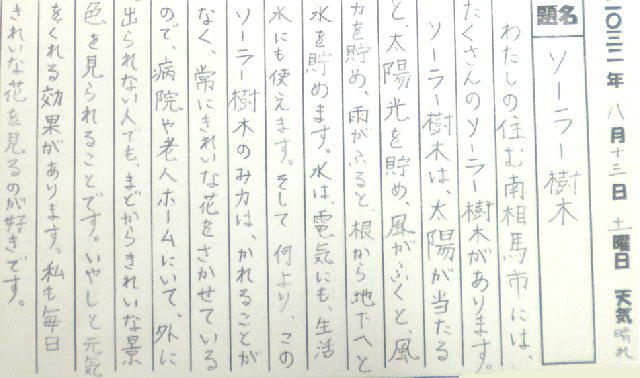 二〇三二年 八月十三日 土曜日 天気 晴れ
題名 ソーラー樹木
わたしの住む南相馬市には、
たくさんのソーラー樹木があります。
ソーラー樹木は、太陽が当たる
と、太陽光を貯め、風がふくと、風
力を貯め、雨がふると、根から地下へと
水を貯めます。水は、電気にも、生活
水にも使えます。そして何より、この
ソーラー樹木のみ力は、かれることが
なく、常にきれいな花をさかせている
ので、病院や老人ホームにいて、外に
出られない人でも、まどからきれいな景
色を見られることです。いやしと元気
をくれる効果があります。私も毎日
きれいな花を見るのが好きです。